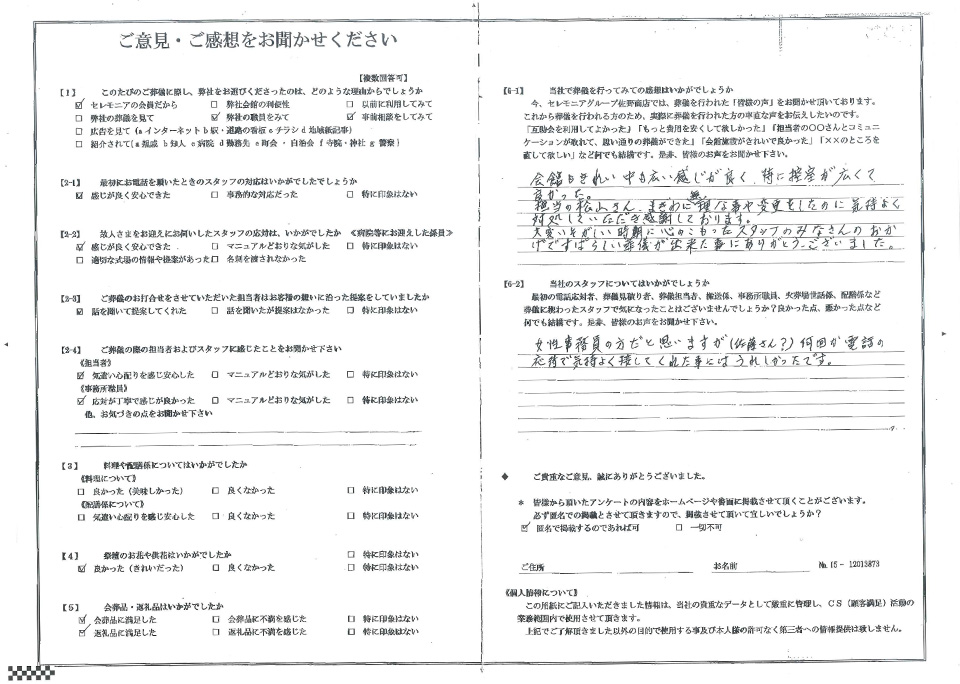 ご意見・ご感想をお聞かせください
【複数回答可】
【1】 このたびのご葬儀に際し、弊社をお選びくださったのは、どのような理由からでしょうか
☑ セレモニアの会員だから □ 弊社会館の利便性 □ 以前に利用してみて
□ 弊社の葬儀を見て ☑ 弊社の職員をみて ☑ 事前相談をしてみて
□ 広告を見て（a インターネット b 駅・道路の看板 c チラシ d 地域紙記事）
□ 紹介されて（a 親戚 b 知人 c 病院 d 勤務先 e 町会・自治会 f 寺院・神社 g 警察）
【2-1】 最初にお電話を頂いたときのスタッフの対応はいかがでしたでしょうか
☑ 感じが良く安心できた □ 事務的な対応だった □ 特に印象はない
【2-2】 故人さまをお迎えにお伺いしたスタッフの応対は、いかがでしたか 《病院等にお迎えした係員》
☑ 感じが良く安心できた □ マニュアルどおりな気がした □ 特に印象はない
□ 適切な式場の情報や提案があった □ 名刺を渡されなかった
【2-3】 ご葬儀のお打合せをさせていただいた担当者はお客様の想いに沿った提案をしていましたか
☑ 話を聞いて提案してくれた □ 話を聞いたが提案はなかった □ 特に印象はない
【2-4】 ご葬儀の際の担当者およびスタッフに感じたことをお聞かせ下さい
《担当者》
☑ 気遣い心配りを感じ安心した □ マニュアルどおりな気がした □ 特に印象はない
《事務所職員》
☑ 応対が丁寧で感じが良かった □ マニュアルどおりな気がした □ 特に印象はない
他、お気づきの点をお聞かせ下さい
【3】 料理や配膳係についてはいかがでしたか
《料理について》
□ 良かった（美味しかった） □ 良くなかった □ 特に印象はない
《配膳係について》
□ 気遣い心配りを感じ安心した □ 良くなかった □ 特に印象はない
【4】 祭壇のお花や供花はいかがでしたか □ 特に印象はない
☑ 良かった（きれいだった） □ 良くなかった □ 特に印象はない
【5】 会葬品・返礼品はいかがでしたか
☑ 会葬品に満足した □ 会葬品に不満を感じた □ 特に印象はない
☑ 返礼品に満足した □ 返礼品に不満を感じた □ 特に印象はない
【6-1】 当社で葬儀を行ってみての感想はいかがでしょうか
今、セレモニアグループ佐野商店では、葬儀を行われた「皆様の声」をお聞かせ頂いております。
これから葬儀を行われる方のため、実際に葬儀を行われた方の率直な声をお伝えしたいのです。
「互助会を利用してよかった」「もっと費用を安くして欲しかった」「担当者の○○さんとコミュニ
ケーションが取れて、思い通りの葬儀ができた」「会館施設がきれいで良かった」「××のところを
直して欲しい」など何でも結構です。是非、皆様のお声をお聞かせ下さい。
会館もきれい 中も広い感じが良く、特に控室が広くて
良かった。
担当の松山さん、まぎわに無理な事や変更をしたのに気持よく
対処していただき感謝しております。
大変いそがしい時期に心のこもったスタッフのみなさんのおか
げですばらしい葬儀が出来た事にありがとうございました。
【6-2】 当社のスタッフについてはいかがでしょうか
最初の電話応対者、葬儀見積り者、葬儀担当者、搬送係、事務所職員、火葬場世話係、配膳係など
葬儀に携わったスタッフで気になったことはございませんでしょうか？良かった点、悪かった点など
何でも結構です。是非、皆様のお声をお聞かせ下さい。
女性事務員の方だと思いますが（佐藤さん？）何回か電話の
応待で気持よく接してくれた事にはうれしかったです。
◆ ご貴重なご意見、誠にありがとうございました。
＊ 皆様から頂いたアンケートの内容をホームページや書面に掲載させて頂くことがございます。
必ず匿名での掲載とさせて頂きますので、掲載させて頂いて宜しいでしょうか？
☑ 匿名で掲載するのであれば可 □ 一切不可
ご住所 お名前 No.15 - 12013873
《個人情報について》
この用紙にご記入いただきました情報は、当社の貴重なデータとして厳重に管理し、CS（顧客満足）活動の
業務範囲内で使用させて頂きます。
上記でご了解頂きました以外の目的で使用する事及び本人様の許可なく第三者への情報提供は致しません。